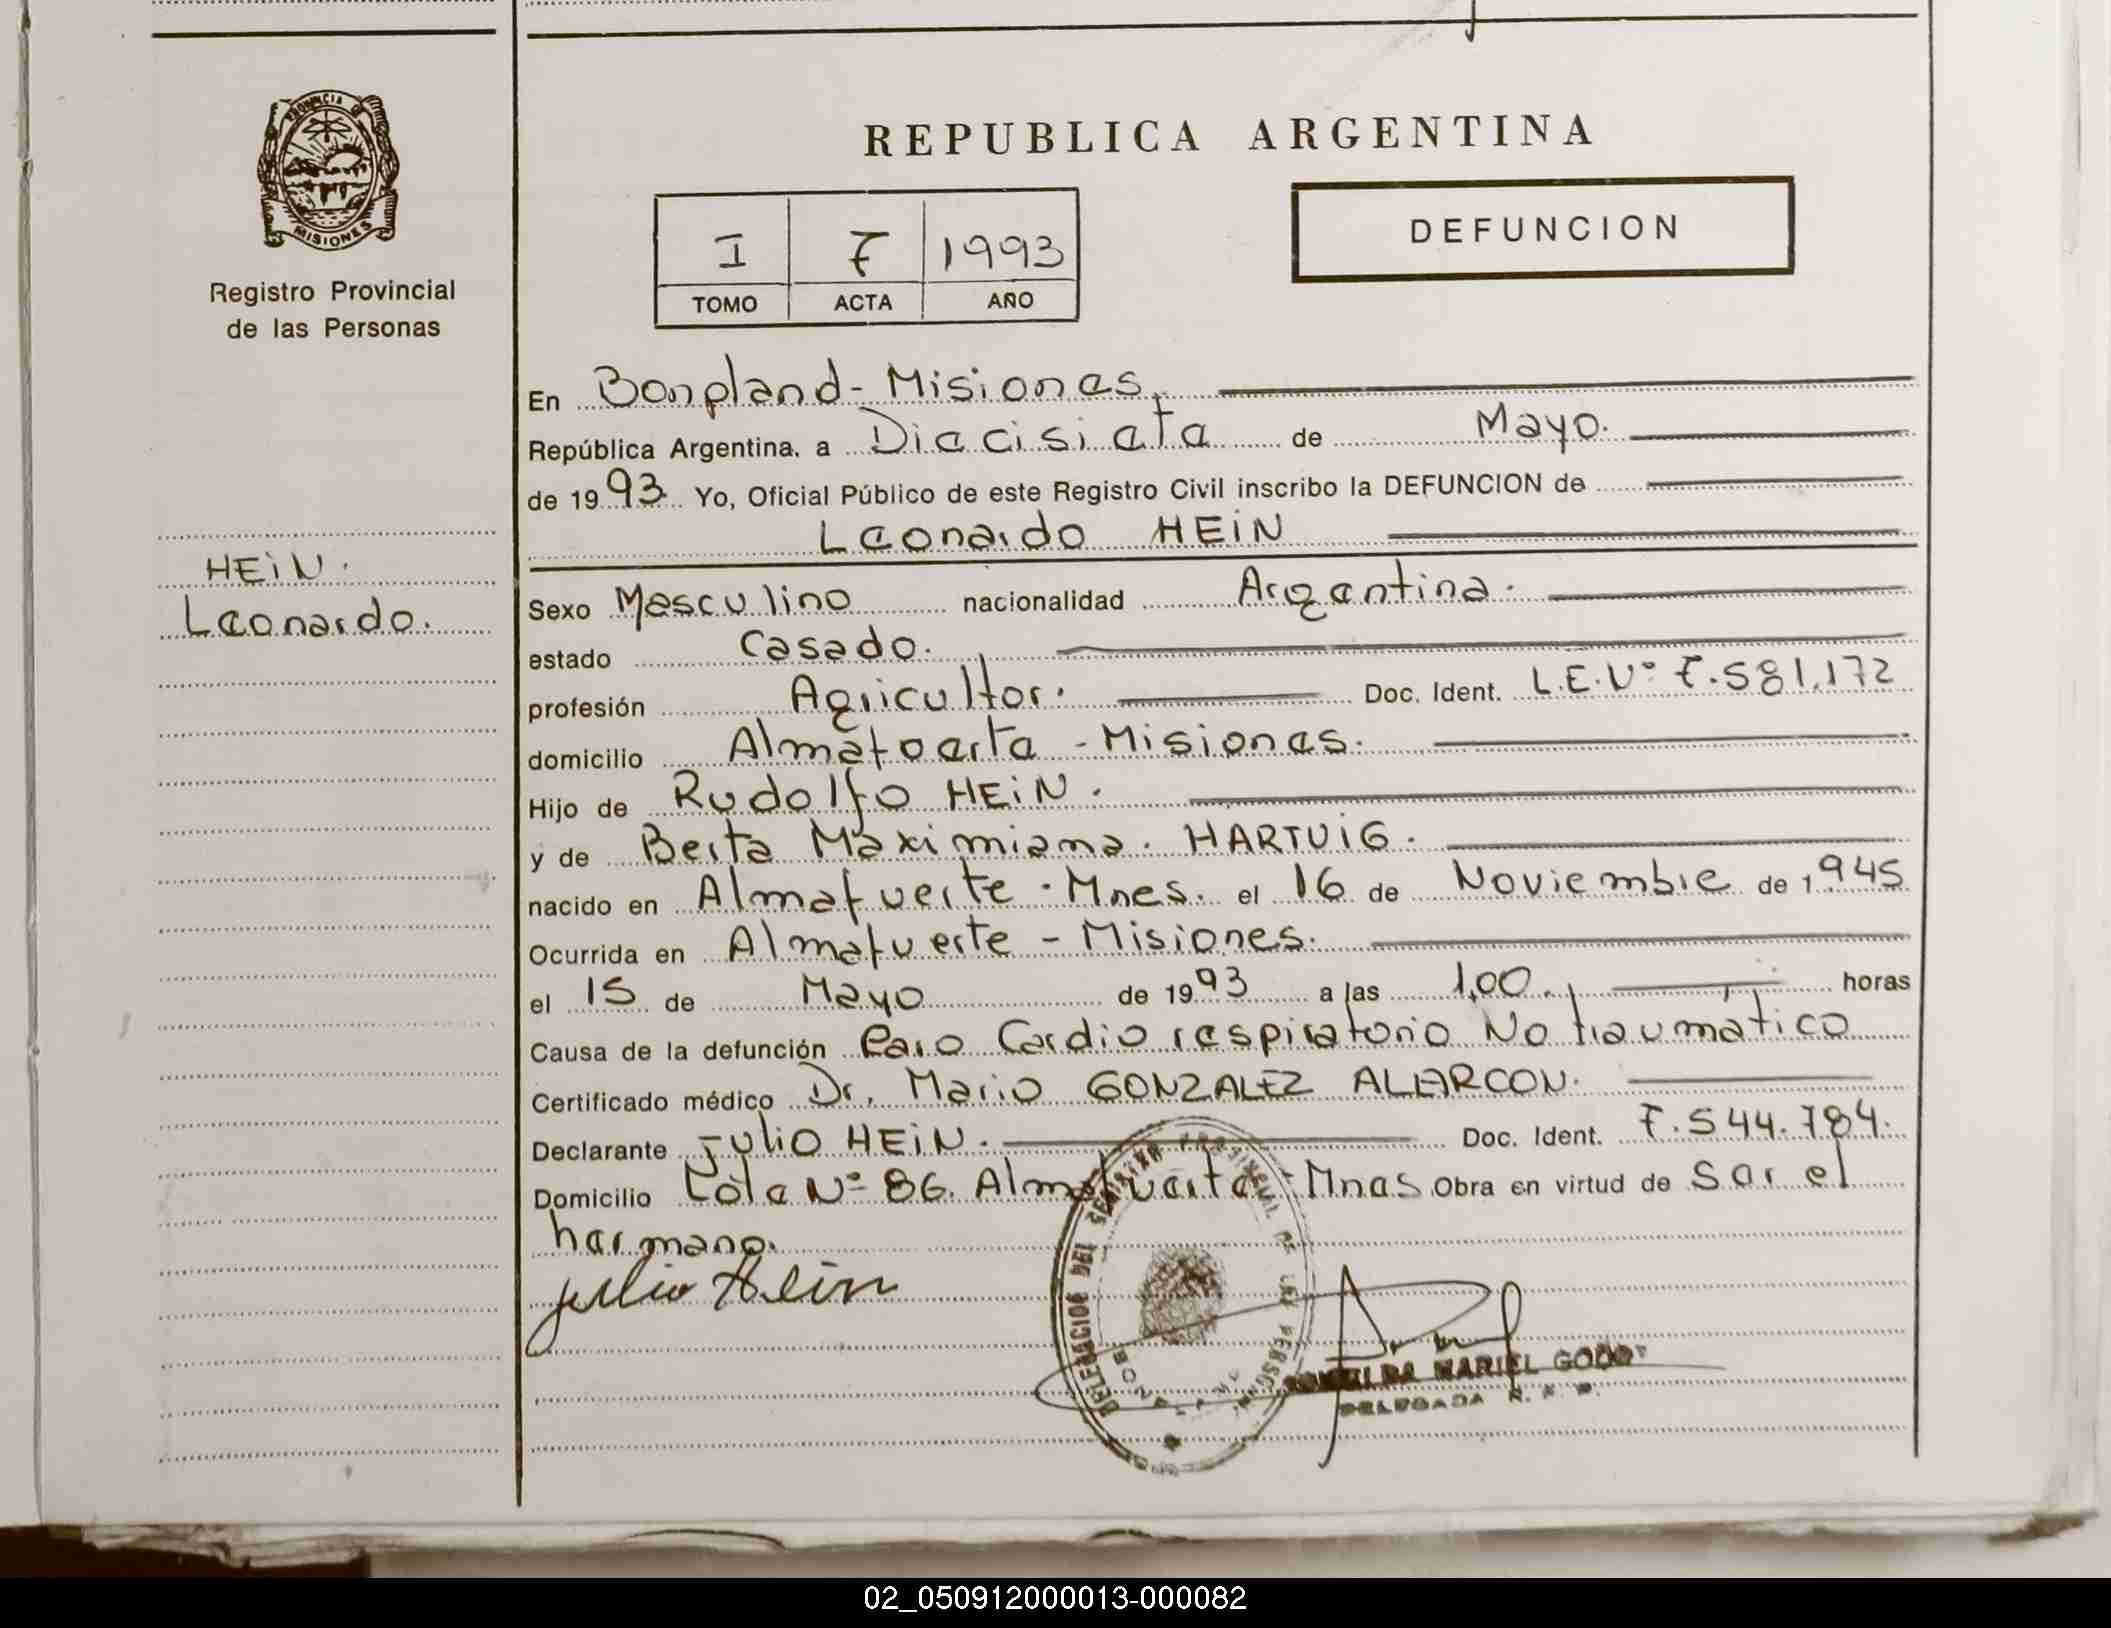 PROVINCIA DE
MISIONES
Registro Provincial
de las Personas
HEiN.
Leonardo.
REPUBLICA ARGENTINA
I 7 1993
TOMO ACTA AÑO
DEFUNCION
En Bonpland - Misiones.
República Argentina, a Diecisiete de Mayo.
de 1993. Yo, Oficial Público de este Registro Civil inscribo la DEFUNCION de
Leonardo HEiN
Sexo Masculino nacionalidad Argentina.
estado Casado.
profesión Agricultor. Doc. Ident. L.E.Nº 7.581.172
domicilio Almafuerte - Misiones.
Hijo de Rudolfo HEiN.
y de Berta Maximiana. HARTUiG.
nacido en Almafuerte - Mnes. el 16 de Noviembre de 1945
Ocurrida en Almafuerte - Misiones.
el 15 de Mayo de 1993 a las 1,00. horas
Causa de la defunción Paro Cardio respiratorio No traumatico
Certificado médico Dr. Mario GONZALEZ ALARCON.
Declarante Julio HEiN. Doc. Ident. 7.544.784.
Domicilio Lote Nº 86. Almafuerte - Mnes Obra en virtud de Ser el
hermano.
Julio Hein
DELEGACION DEL REGISTRO PROVINCIAL DE LAS PERSONAS
MARIEL GODOY
DELEGADA R. P. P.
02_050912000013-000082